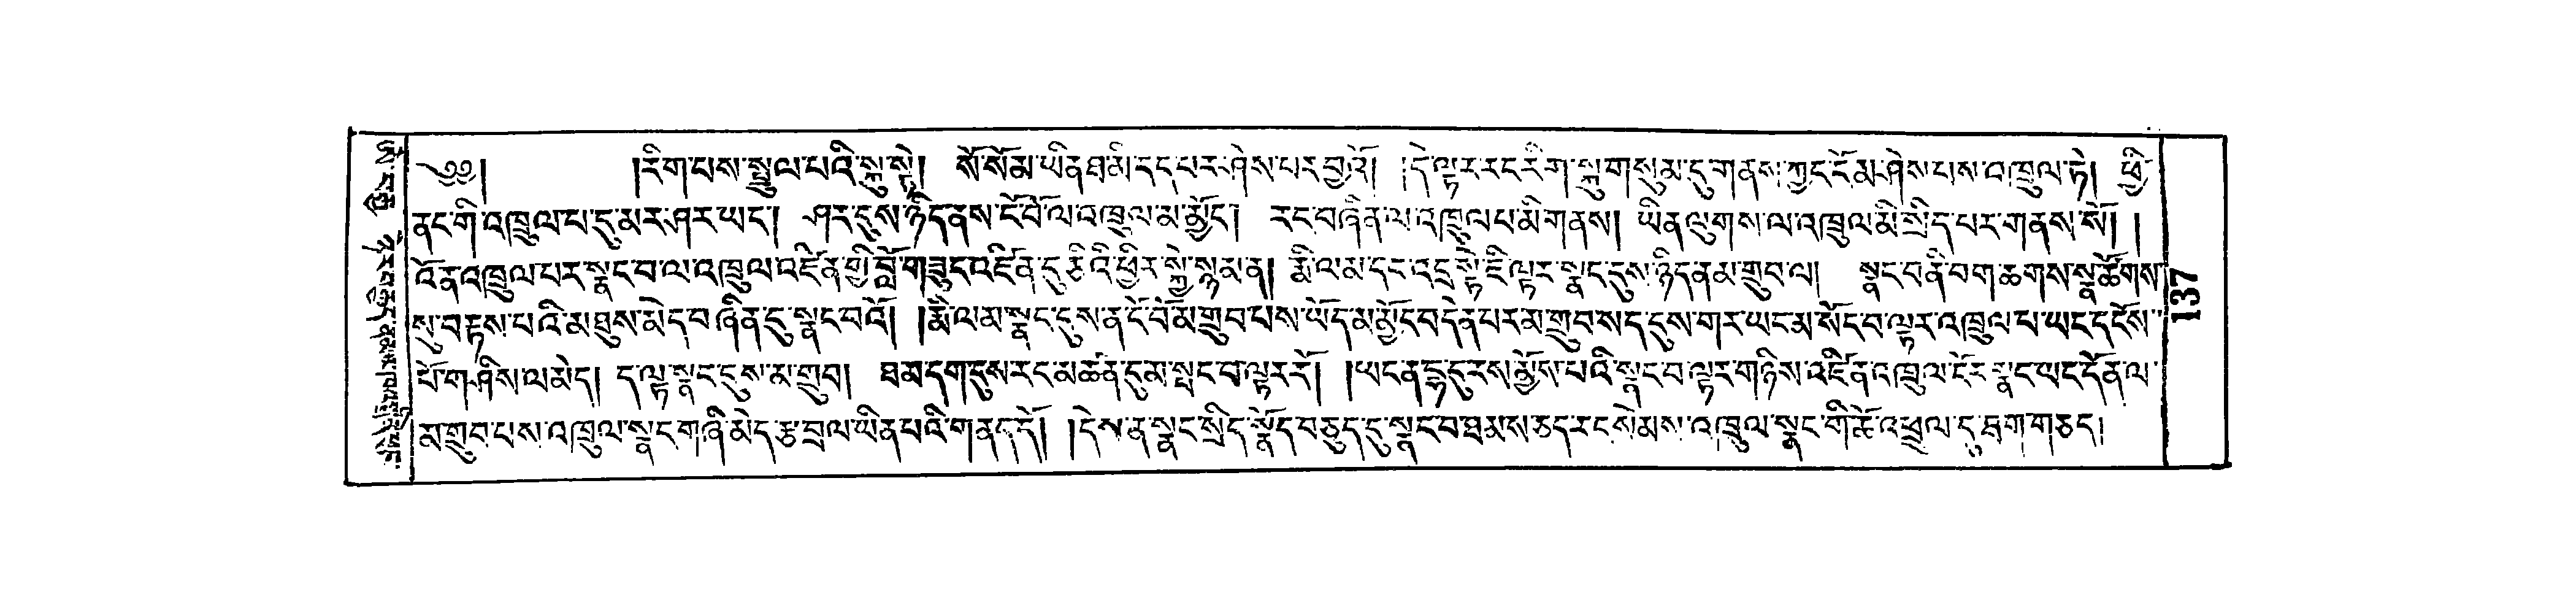 ༄༅། །རིག་པས་སྤྲུལ་པའི་སྐུ་སྟེ། སོ་སོམ་ཡིན་ཐ་མི་དད་པར་ཤེས་པར་བྱའོ། །དེ་ལྟར་རང་རིག་སྐུ་གསུམ་དུ་གནས་ཀྱང་ངོ་མ་ཤེས་པས་འཁྲུལ་ཏེ། ཕྱི་
ནང་གི་འཁྲུལ་པ་དུ་མར་ཤར་ཡང་། ཤར་དུས་ཉིད་ནས་ངོ་བོ་ལ་འཁྲུལ་མ་མྱོང་། རང་བཞིན་ལ་འཁྲུལ་པ་མི་གནས། ཡིན་ལུགས་ལ་འཁྲུལ་མི་སྲིད་པར་གནས་སོ། །
འོ་ན་འཁྲུལ་པར་སྣང་བ་ལ་འཁྲུལ་འཛིན་གྱི་བློ་གཟུང་འཛིན་དུ་ཅིའི་ཕྱིར་སྐྱེ་སྙམ་ན། རྨི་ལམ་དང་འདྲ་སྟེ་ཇི་ལྟར་སྣང་དུས་ཉིད་ན་མ་གྲུབ་ལ། སྣང་བ་ནི་བག་ཆགས་སྣ་ཚོགས་
སུ་བརྟས་པའི་མཐུས་མེད་བཞིན་དུ་སྣང་བའོ། །རྨི་ལམ་སྣང་དུས་ན་ངོ་བོ་མ་གྲུབ་པས་ཡོད་མ་མྱོང་བདེན་པར་མ་གྲུབ་སད་དུས་གར་ཡང་མ་སོང་བ་ལྟར་འཁྲུལ་པ་ཡང་དངོས་
པོ་གཤིས་ལ་མེད། ད་ལྟ་སྣང་དུས་མ་གྲུབ། ཐམ་དག་དུས་རང་མཚན་དུ་མ་སྤང་བ་ལྟར་རོ། །ཡང་ན་དྷ་དུ་རས་མྱོས་པའི་སྣང་བ་ལྟར་གཉིས་འཛིན་འཁྲུལ་ངོར་སྣང་ཡང་དོན་ལ་
མ་གྲུབ་པས་འཁྲུལ་སྣང་གཞི་མེད་རྩ་བྲལ་ཡིན་པའི་གནད་དོ། །དེས་ན་སྣང་སྲིད་སྣོད་བཅུད་དུ་སྣང་བ་ཐམས་ཅད་རང་སེམས་འཁྲུལ་སྣང་གི་ཚོ་འཕྲུལ་དུ་ཐག་གཅད།